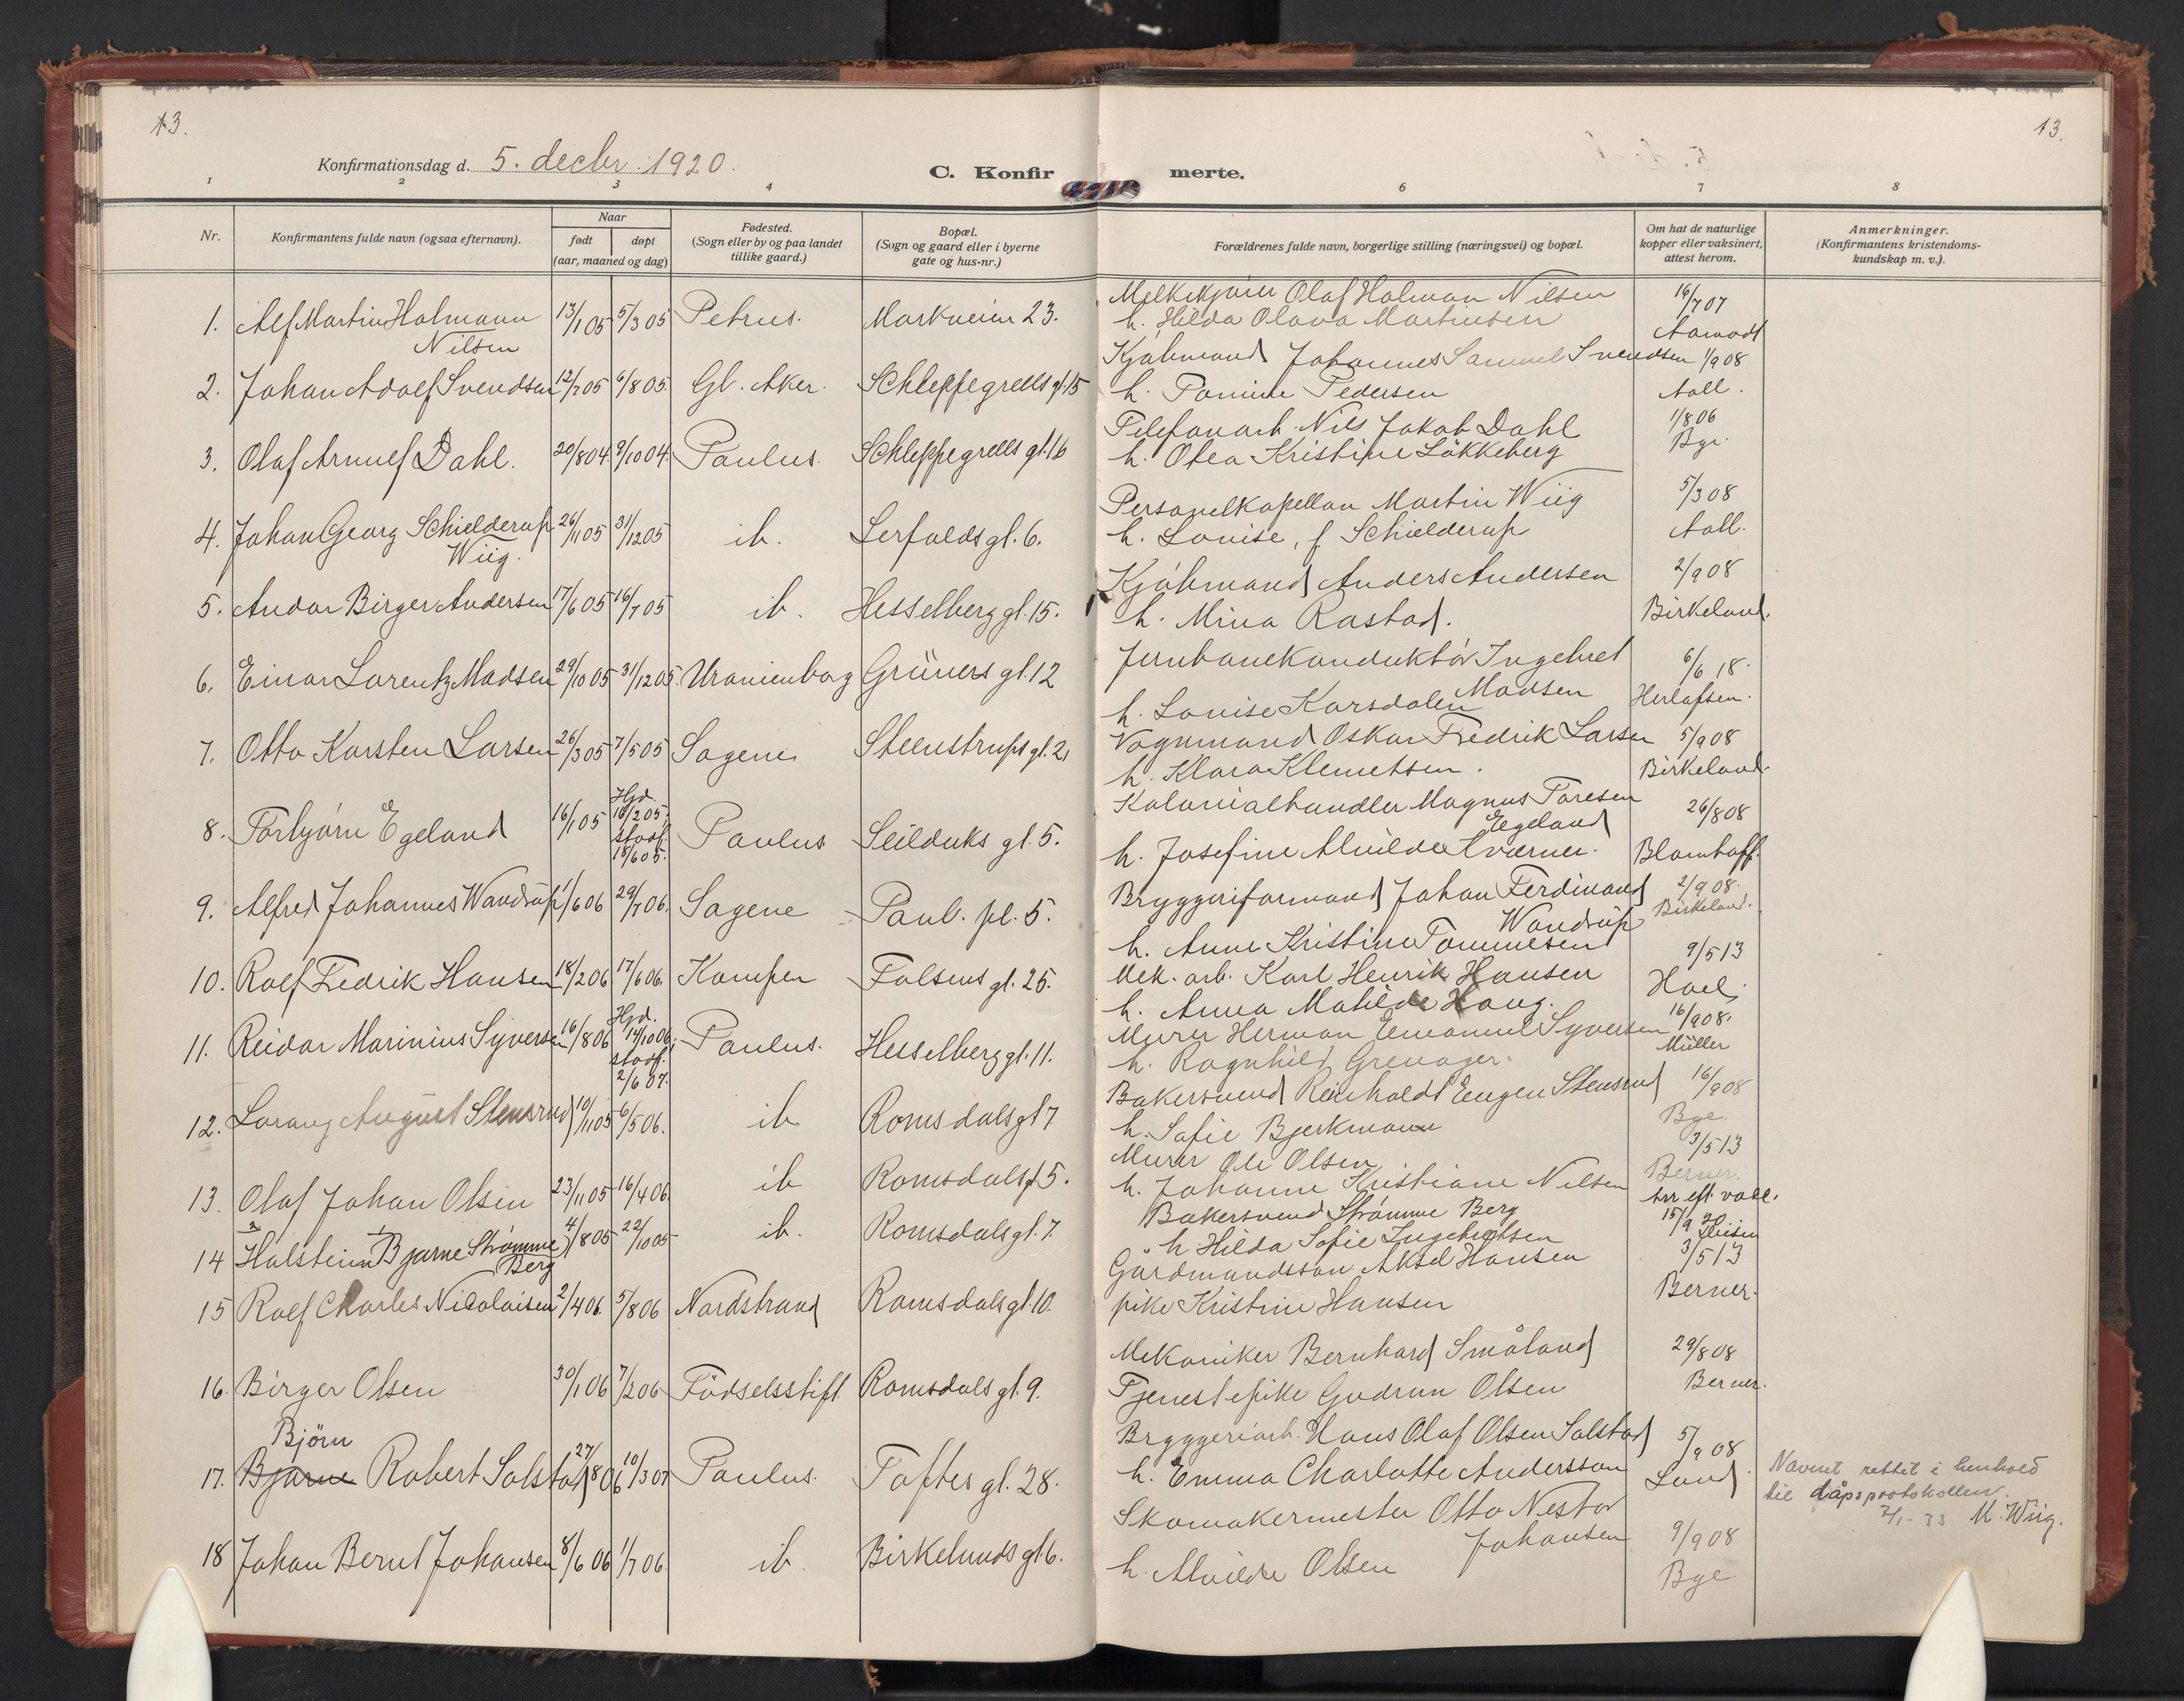 13.
13.
Konfirmationsdag d. 5. decbr. 1920.
C. Konfirmerte.
1 2 3 4 6 7 8
Nr.
Konfirmantens fulde navn (ogsaa efternavn).
Naar
født døpt
(aar, maaned og dag)
Fødested.
(Sogn eller by og paa landet
tillike gaard.)
Bopæl.
(Sogn og gaard eller i byerne
gate og hus-nr.)
Forældrenes fulde navn, borgerlige stilling (næringsvei) og bopæl.
Om hat de naturlige
kopper eller vaksinert,
attest herom.
Anmerkninger.
(Konfirmantens kristendoms-
kundskap m. v.).
1. Alf Martin Holmann 13/1 05 5/3 05 Petrus. Markveien 23.
Nilsen
Melkekjører Olaf Holman Nilsen 16/7 07
h. Hilda Olava Martinsen Aamodt
2. Johan Adolf Svendsen 12/7 05 6/8 05. Gl. Aker. Schleppegrells gt. 15
Kjøbmand Johannes Samuel Svendsen 1/9 08
h. Tomine Pedersen Aall.
3. Olaf Arnulf Dahl. 20/8 04 9/10 04. Paulus. Schleppegrells gt. 16
Telefonarb. Nils Jakob Dahl 1/8 06
h. Olea Kristine Løkkeberg Bye.
4. Johan Georg Schielderup 26/11 05 31/12 05 ib. Lerfaldsgt. 6.
Wiig.
Personelkapellan Martin Wiig 5/3 08
h. Louise, f. Schielderup Aall.
5. Andor Birger Andersen 17/6 05 16/7 05 ib. Hesselberggt. 15.
Kjøbmand Anders Andersen 2/9 08
h. Mina Rastad. Birkeland.
6. Einar Lorentz Madsen 29/10 05 31/12 05. Uranienborg Grüners gt. 12
Jernbanekonduktør Ingebret 6/6 18.
Madsen
h. Louise Korsdalen Herlofsen.
7. Otto Karsten Larsen 26/3 05 7/5 05 Sagene Steenstrups gt. 21
Vognmand Oskar Fredrik Larsen 5/9 08
h. Klara Klemetsen. Birkeland.
8. Torbjørn Egeland 16/1 05 Hjd. 16/2 05. stadf. 18/6 05. Paulus Seilduks gt. 5.
Kolonialhandler Magnus Toresen 26/8 08
Egeland
h. Josefine Alvilde Kværner. Blomhoff.
9. Alfred Johannes Wandrup 1/6 06 29/7 06. Sagene Paul. pl. 5.
Bryggeriformand Johan Ferdinand 2/9 08.
Wandrup Birkeland.
h. Anne Kristine Tommesen
10. Rolf Fredrik Hansen 18/2 06 17/6 06. Kampen Falsens gt. 25.
Mek. arb. Karl Henrik Hansen 9/5 13
h. Anna Matilde Haug. Hoel.
11. Reidar Marinius Syversen 16/8 06 Hjd. 14/10 06; stadf. 2/6 07. Paulus. Hesselberggt. 11.
Murer Herman Emanuel Syversen 16/9 08.
h. Ragnhild Grenager. Müller
12. Lorang August Stensrud 10/11 05 6/5 06. ib Romsdalsgt 7
Bakersvend Reinholdt Eugen Stensrud 16/9 08
h. Sofie Bjerkmann Bye.
13. Olaf Johan Olsen 23/11 05 16/4 06. ib Romsdalsgt 5.
Murer Ole Olsen 3/5 13
h. Johanne Kristiane Nilsen Berner.
14 Halstein Bjarne Strømme 4/8 05 22/10 05 ib. Romsdalsgt. 7.
Berg
Bakersvend Strømme Berg Arr eft. vakc.
h. Hilda Sofie Ingebretsen 15/9 20
15 Rolf Charles Nicolaisen 2/4 06. 5/8 06 Nordstrand Romsdalsgt. 10.
Gårdmandssøn Aksel Hansen 3/5 13
pike Kristine Hansen Berner.
16. Birger Olsen 30/1 06 7/2 06 Födselsstift. Romsdals gt. 9.
Mekaniker Bernhard Småland 29/8 08
Tjenestepike Gudrun Olsen Berner.
Björn
17. Bjarne Robert Solstad 27/ 8 06 10/3 07 Paulus. Toftes gt. 28.
Bryggeriarb. Hans Olaf Olsen Solstad 5/9 08
h. Emma Charlotte Andersson Lund
Navnet rettet i henhold
til dåpsprotokollen.
2/1-33 M. Wiig.
18 Johan Bernt Johansen 8/6 06 1/7 06. ib. Birkelunds gt 6.
Skomakermester Otto Nestor
Johansen 9/9 08
h. Alvilde Olsen Bye.